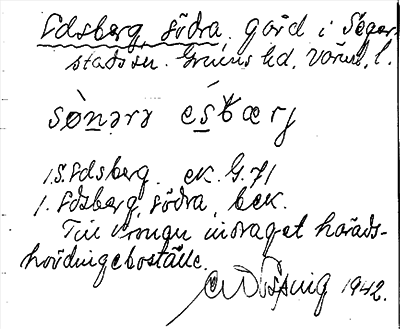 Edsberg, södra. gård i Seger-
stads sn. Grums hd. Värml. l.
sø̀nǝrǝ ésbærj
1. S. Edsberg. ek. G. 71
1. Edsberg, södra, bek.
Till kronan indraget härads-
hövdingeboställe.
1942.